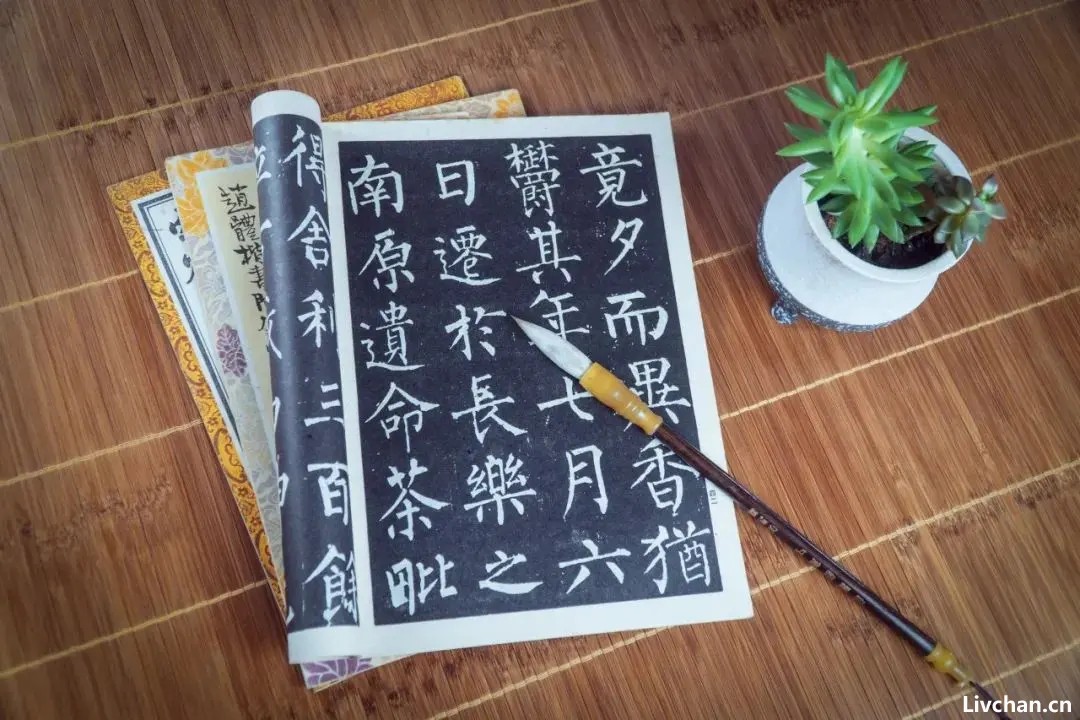 竟夕而異香猶
欝其年七月六
日遷於長樂之
南原遺命茶毗
得舍利三百餘
道體楷書
Livchan.cn